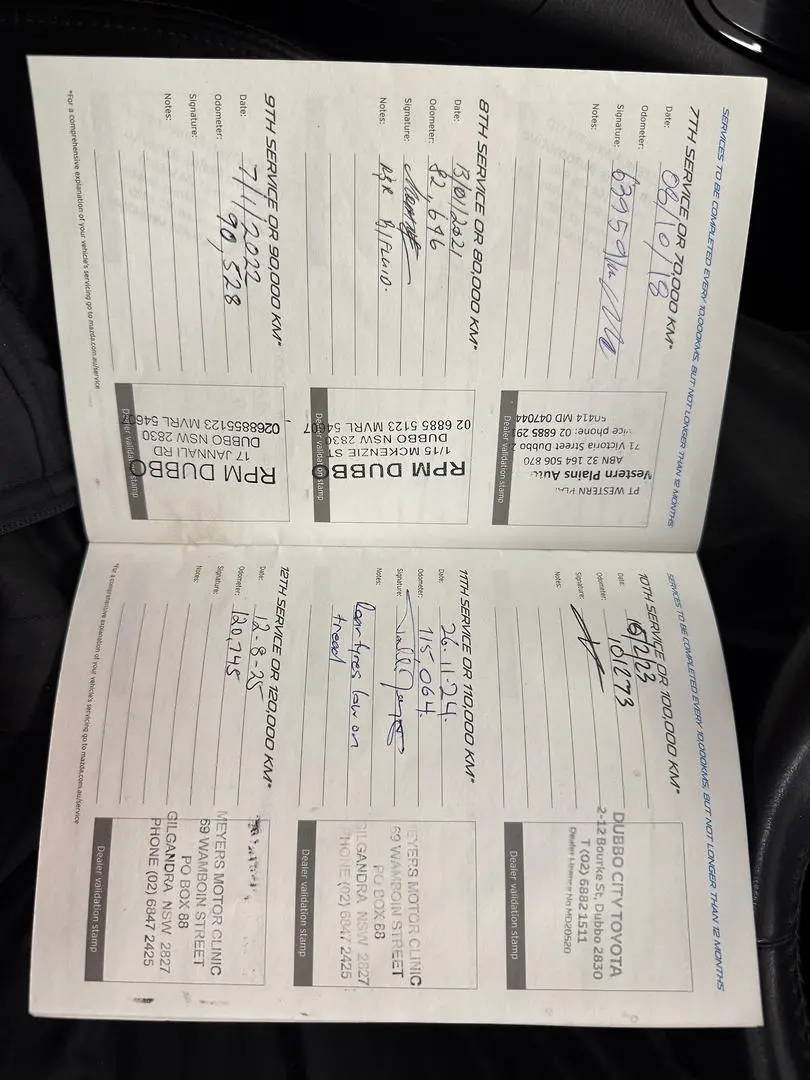 SERVICES TO BE COMPLETED EVERY 10,000KMS, BUT NOT LONGER THAN 12 MONTHS
7TH SERVICE OR 70,000 KM*
Date: 06/10/18
Odometer:
Signature:
Notes:
PT WESTERN PLA
Western Plains Auto
ABN 32 164 506 870
71 Victoria Street Dubbo
vice phone: 02 6885 29
50414 MD 047044
Dealer validation stamp
8TH SERVICE OR 80,000 KM*
Date: 13/01/2021
Odometer: 82,646
Signature:
Notes: B/FLUID.
RPM DUBBO
1/15 MCKENZIE ST
DUBBO NSW 2830
02 6885 5123 MVRL 54607
Dealer validation stamp
9TH SERVICE OR 90,000 KM*
Date: 7/1/2022
Odometer: 90,528
Signature:
Notes:
RPM DUBBO
17 JANNALI RD
DUBBO NSW 2830
0268855123 MVRL 54607
Dealer validation stamp
*For a comprehensive explanation of your vehicle's servicing go to mazda.com.au/service
SERVICES TO BE COMPLETED EVERY 10,000KMS, BUT NOT LONGER THAN 12 MONTHS
10TH SERVICE OR 100,000 KM*
Date: 6/2/23
Odometer: 101273
Signature:
Notes:
DUBBO CITY TOYOTA
2-12 Bourke St, Dubbo 2830
T (02) 6882 1511
Dealer Licence No MD20520
Dealer validation stamp
11TH SERVICE OR 110,000 KM*
Date: 26.11.24.
Odometer: 115,064.
Signature:
Notes: Rear tyres low on
tread
MEYERS MOTOR CLINIC
69 WAMBOIN STREET
PO BOX 68
GILGANDRA NSW 2827
PHONE (02) 6847 2425
Dealer validation stamp
12TH SERVICE OR 120,000 KM*
Date: 12-8-25
Odometer: 120,745
Signature:
Notes:
MEYERS MOTOR CLINIC
69 WAMBOIN STREET
PO BOX 68
GILGANDRA NSW 2827
PHONE (02) 6847 2425
Dealer validation stamp
*For a comprehensive explanation of your vehicle's servicing go to mazda.com.au/service